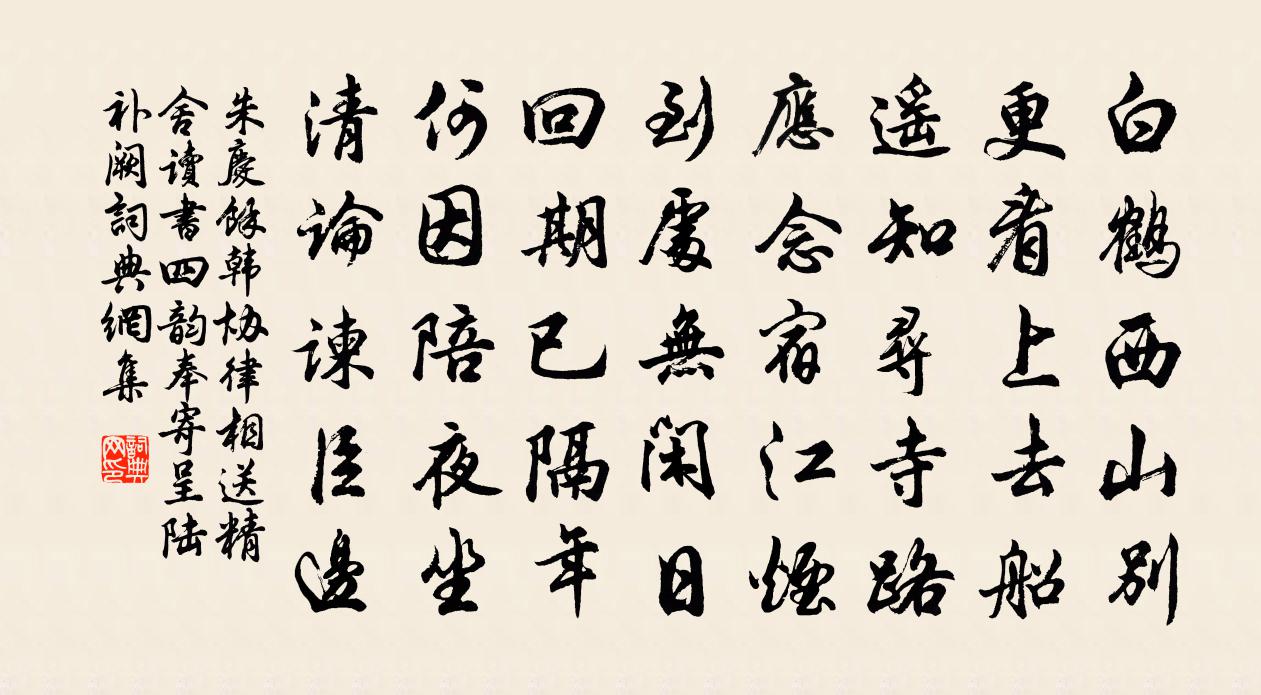 白鶴西山別
更看上去船
遥知尋寺路
應念宿江煙
到處無閑日
回期已隔年
何因陪夜坐
清論諫臣邊
朱慶餘韩協律相送精
舍讀書四韵奉寄呈陆
补阙詞典網集
詞典网印